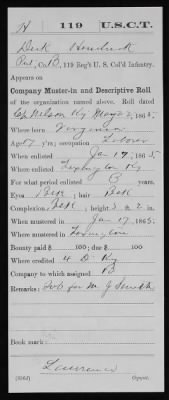 H 119 U.S.C.T.
Pvt., Co. B, 119 Reg't U. S. Col'd Infantry.
Appears on
Company Muster-in and Descriptive Roll
of the organization named above. Roll dated
Cp Nelson Ky May 22, 1865.
Where born Virginia
Age 17 y'rs; occupation Laborer
When enlisted Jan 17, 1865.
Where enlisted Lexington Ky
For what period enlisted 3 years.
Eyes Blk; hair Blk
Complexion Blk; height 5 ft. 2 in.
When mustered in Jan 17, 1865.
Where mustered in Lexington
Bounty paid $ 100; due $ 100
Where credited 4 D Ky
Company to which assigned B
Remarks: Sub for M J Smith
Book mark:
Lawrence
Copyist.